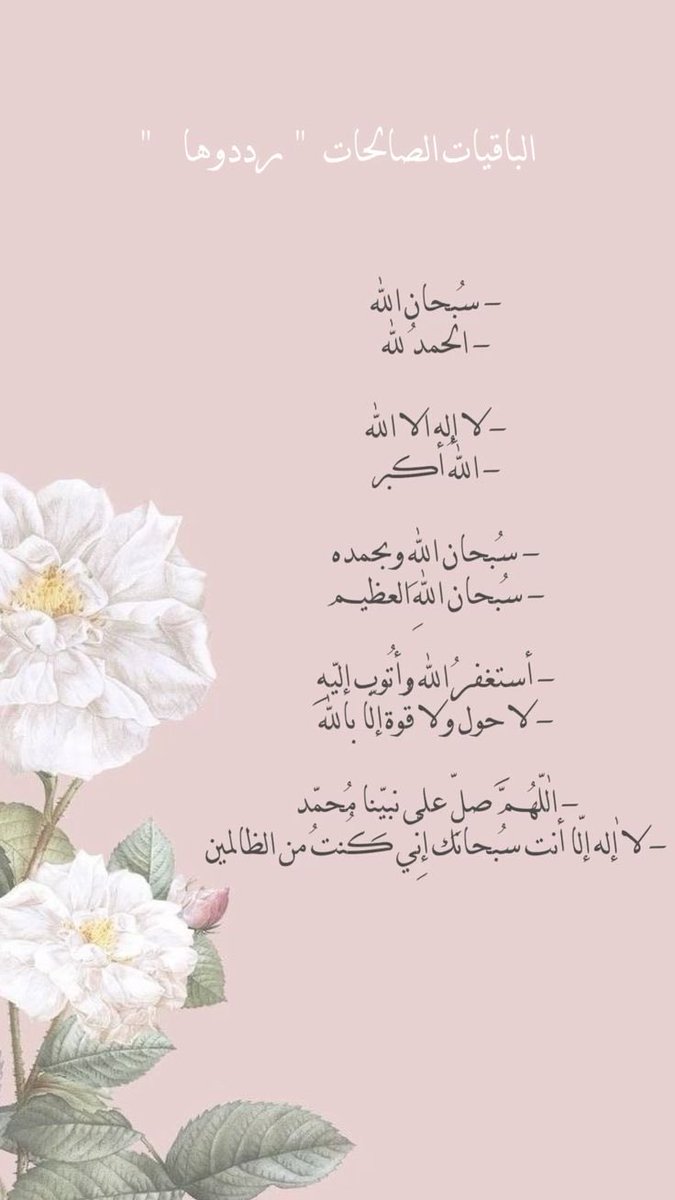 الباقيات الصالحات " رددوها "
– سُبحان الله
– الحمدُ لله
– لا إله الا الله
– اللهُ أكبر
– سُبحان الله وبحمده
– سُبحان اللهِ العظيم
– أستغفرُ الله وأتُوب إليّهِ
– لا حول ولا قوة إلّا بالله
– اللّهُمَّ صلِّ على نبيّنا مُحمّد
– لا إله إلّا أنت سبُحانك إِني كُنتُ من الظالمين